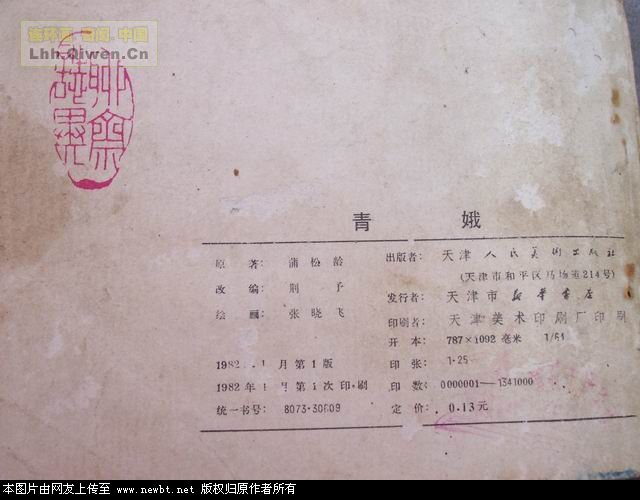 Lhh.Qiwen.Cn
聊斋
青 娥
原 著: 蒲松龄
改 编: 荆 予
绘 画: 张晓飞
1982 1月第1版
1982年1月第1次印刷
统一书号: 8073·30609
出版者: 天津人民美术出版社
(天津市和平区马场道214号)
发行者: 天津市新华书店
印刷者: 天津美术印刷厂印刷
开 本: 787×1092毫米 1/64
印 张: 1·25
印 数: 0000001—1341000
定 价: 0.13元
本图片由网友上传至 www.newbt.net 版权归原作者所有